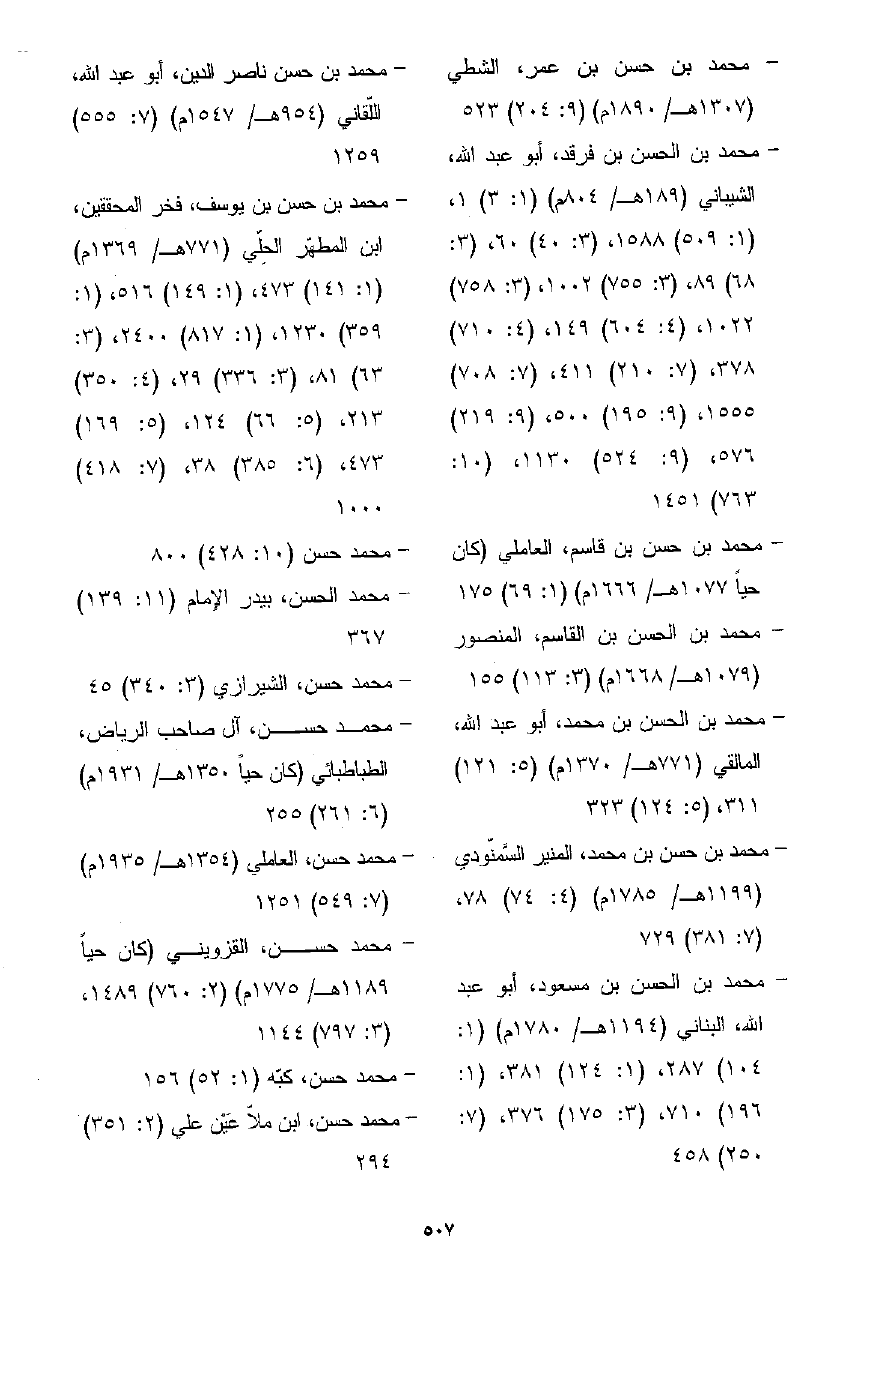 - محمد بن حسن بن عمر، الشطي
(١٣٠٧هـ/ ١٨٩٠م) (٩: ٢٠٤) ٥٢٣
- محمد بن الحسن بن فرقد، أبو عبد الله،
الشيباني (١٨٩هـ/ ٨٠٤م) (١: ٣) ١،
(١: ٥٠٩) ١٥٨٨، (٣: ٤٠) ٦٠، (٣:
٦٨) ٨٩، (٣: ٧٥٥) ١٠٠٢، (٣: ٧٥٨)
١٠٢٢، (٤: ٦٠٤) ١٤٩، (٤: ٧١٠)
٣٧٨، (٧: ٢١٠) ٤١١، (٧: ٧٠٨)
١٥٥٥، (٩: ١٩٥) ٥٠٠، (٩: ٢١٩)
٥٧٦، (٩: ٥٢٤) ١١٣٠، (١٠:
٧٦٣) ١٤٥١
- محمد بن حسن بن قاسم، العاملي (كان
حياً ١٠٧٧هـ/ ١٦٦٦م) (١: ٦٩) ١٧٥
- محمد بن الحسن بن القاسم، المنصور
(١٠٧٩هـ/ ١٦٦٨م) (٣: ١١٣) ١٥٥
- محمد بن الحسن بن محمد، أبو عبد الله،
المالقي (٧٧١هـ/ ١٣٧٠م) (٥: ١٢١)
٣١١، (٥: ١٢٤) ٣٢٣
- محمد بن حسن بن محمد، المنير السَّمنّودي
(١١٩٩هـ/ ١٧٨٥م) (٤: ٧٤) ٧٨،
(٧: ٣٨١) ٧٢٩
- محمد بن الحسن بن مسعود، أبو عبد
الله، البناني (١١٩٤هـ/ ١٧٨٠م) (١:
١٠٤) ٢٨٧، (١: ١٢٤) ٣٨١، (١:
١٩٦) ٧١٠، (٣: ١٧٥) ٣٧٦، (٧:
٢٥٠) ٤٥٨
- محمد بن حسن ناصر الدين، أبو عبد الله،
اللّقاني (٩٥٤هـ/ ١٥٤٧م) (٧: ٥٥٥)
١٢٥٩
- محمد بن حسن بن يوسف، فخر المحققين،
ابن المطهّر الحلّي (٧٧١هـ/ ١٣٦٩م)
(١: ١٤١) ٤٧٣، (١: ١٤٩) ٥١٦، (١:
٣٥٩) ١٢٣٠، (١: ٨١٧) ٢٤٠٠، (٣:
٦٣) ٨١، (٣: ٣٣٦) ٢٩، (٤: ٣٥٠)
٢١٣، (٥: ٦٦) ١٢٤، (٥: ١٦٩)
٤٧٣، (٦: ٣٨٥) ٣٨، (٧: ٤١٨)
١٠٠٠
- محمد حسن (١٠: ٤٢٨) ٨٠٠
- محمد الحسن، بيدر الإمام (١١: ١٣٩)
٣٦٧
- محمد حسن، الشيرازي (٣: ٣٤٠) ٤٥
- محمد حسن، آل صاحب الرياض،
الطباطبائي (كان حياً ١٣٥٠هـ/ ١٩٣١م)
(٦: ٢٦١) ٢٥٥
- محمد حسن، العاملي (١٣٥٤هـ/ ١٩٣٥م)
(٧: ٥٤٩) ١٢٥١
- محمد حسن، القزويني (كان حياً
١١٨٩هـ/ ١٧٧٥م) (٢: ٧٦٠) ١٤٨٩،
(٣: ٧٩٧) ١١٤٤
- محمد حسن، كبّه (١: ٥٢) ١٥٦
- محمد حسن، ابن ملاّ عيّن علي (٢: ٣٥١)
٢٩٤
٥٠٧